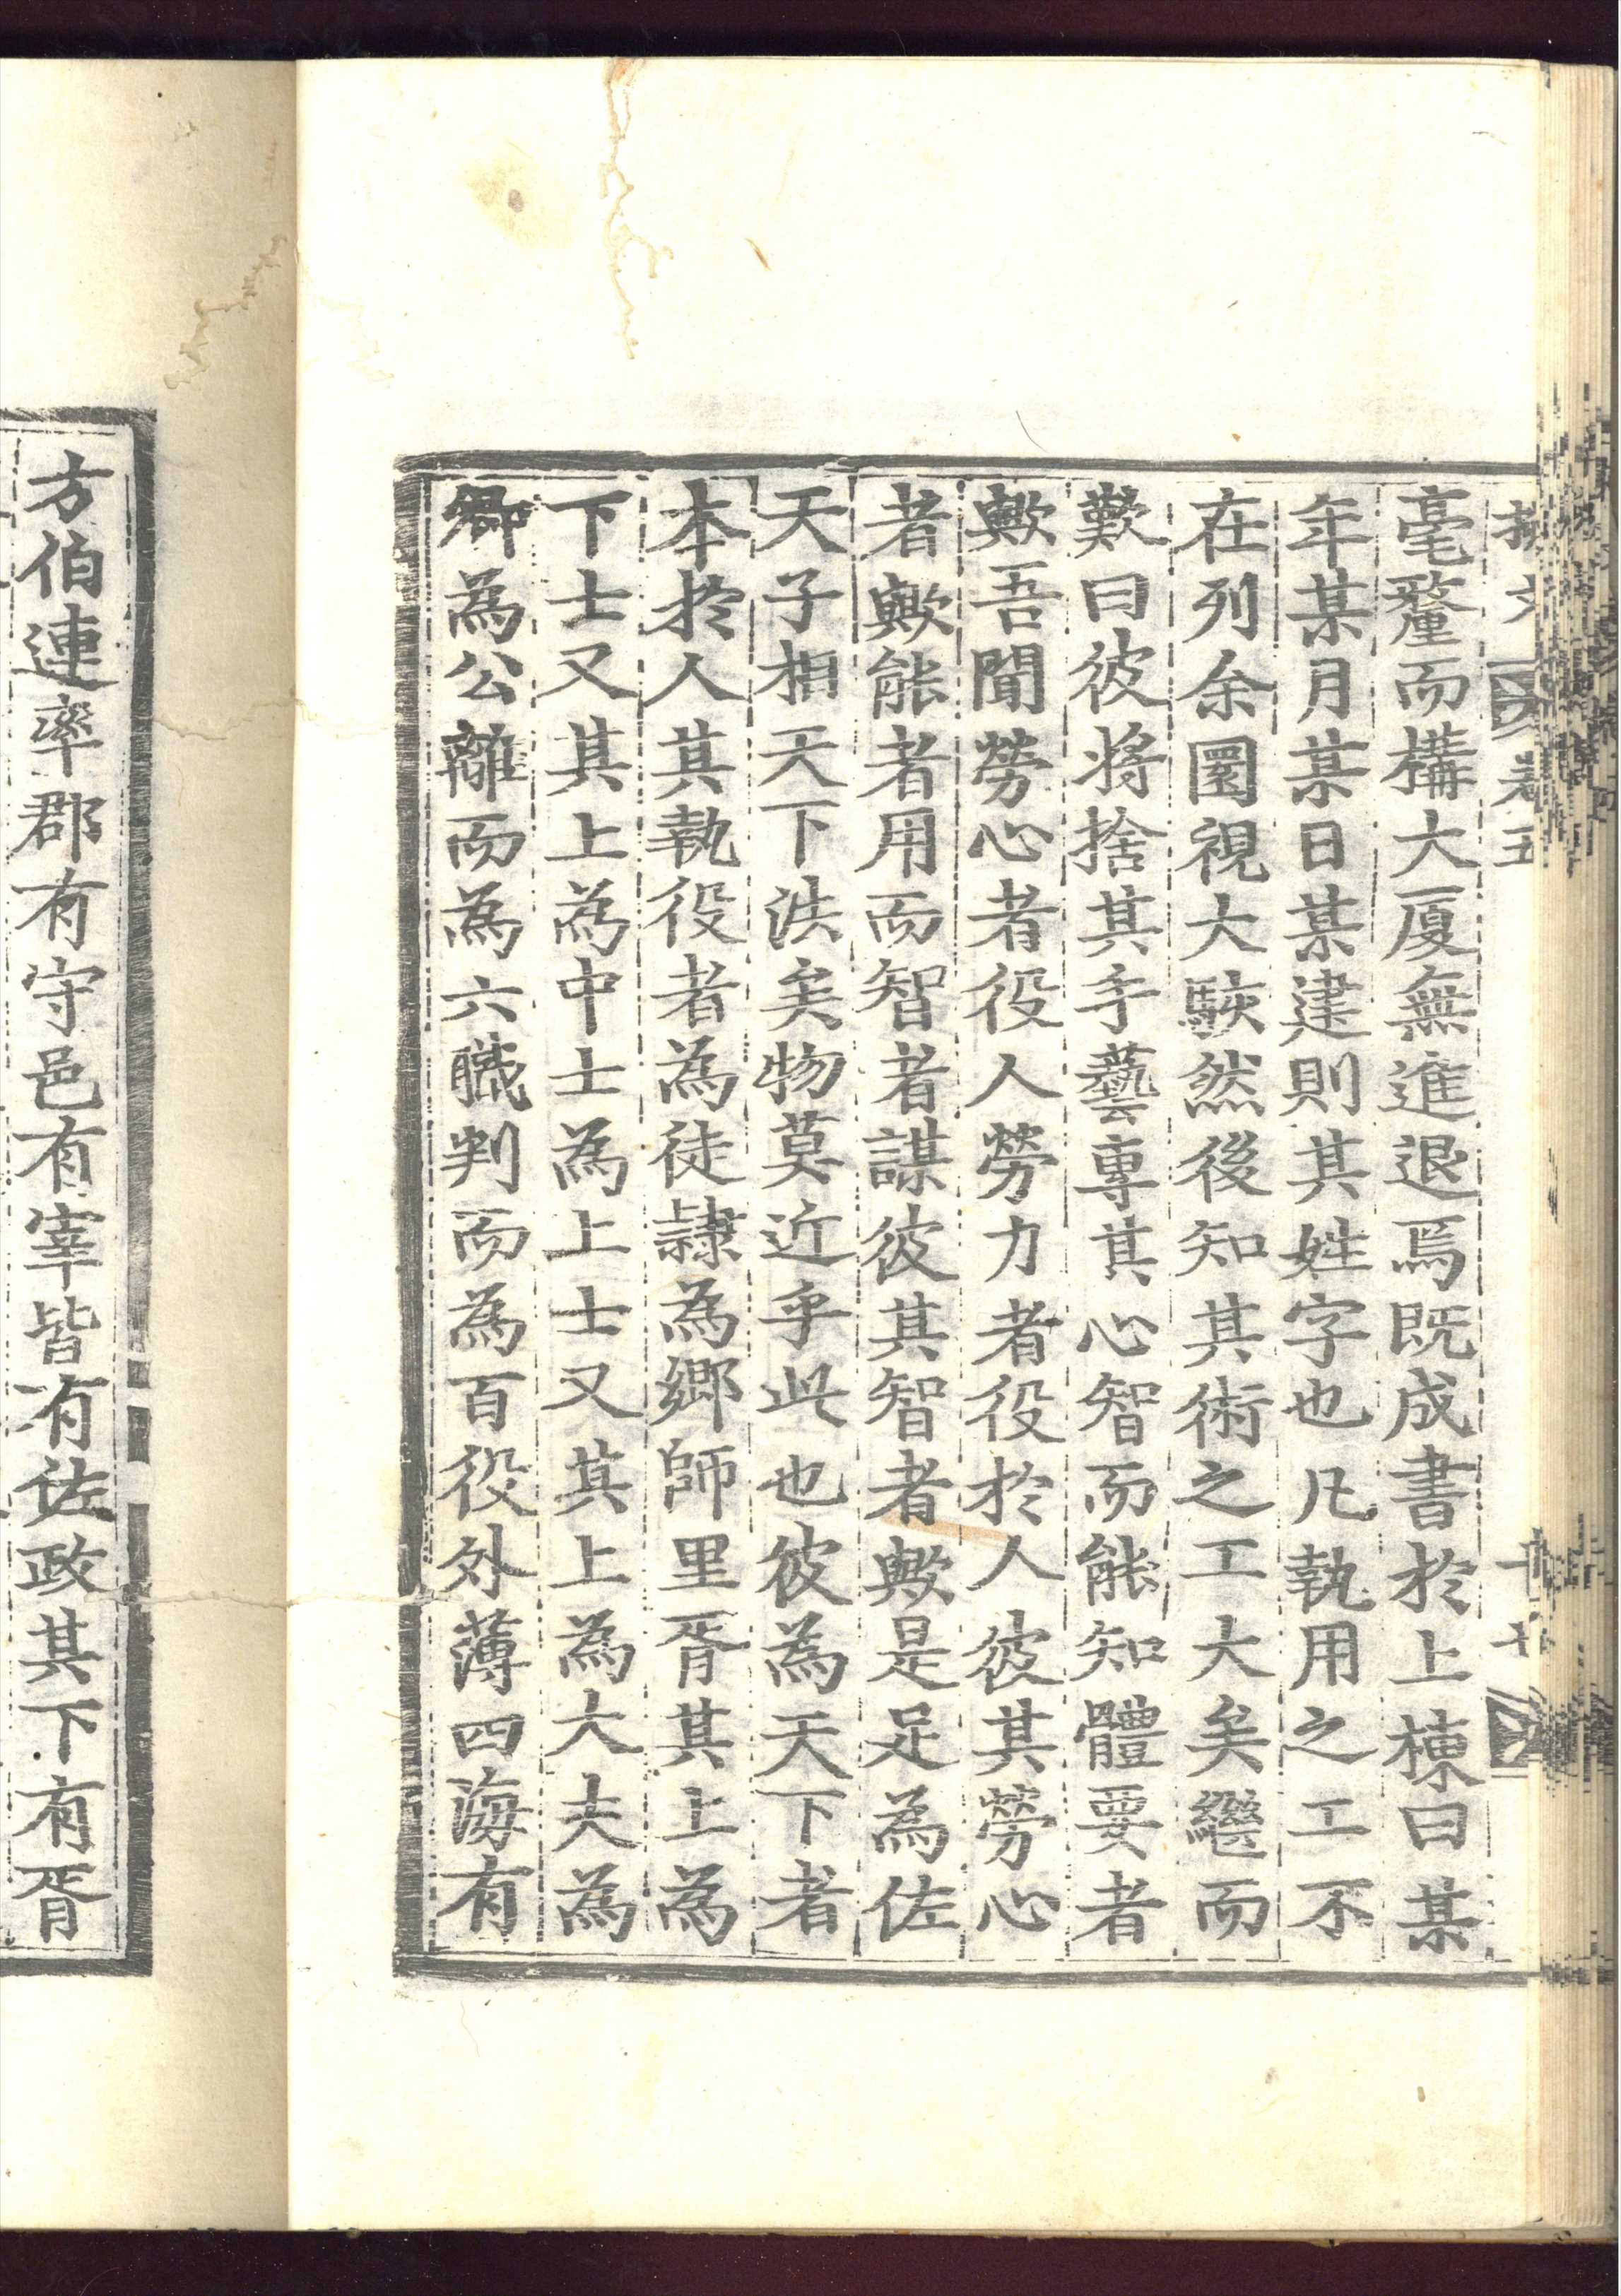 毫釐而構大厦無進退焉既成書於上棟曰某
年某月某日某建則其姓字也凡執用之工不
在列余圜視大駭然後知其術之工大矣繼而
歎曰彼將捨其手藝專其心智而能知體要者
歟吾聞勞心者役人勞力者役於人彼其勞心
者歟能者用而智者謀彼其智者歟是足為佐
天子相天下法矣物莫近乎此也彼為天下者
本於人其執役者為徒隷為鄉師里胥其上為
下士又其上為中士為上士又其上為大夫為
卿為公離而為六職判而為百役外薄四海有
方伯連率郡有守邑有宰皆有佐政其下有胥